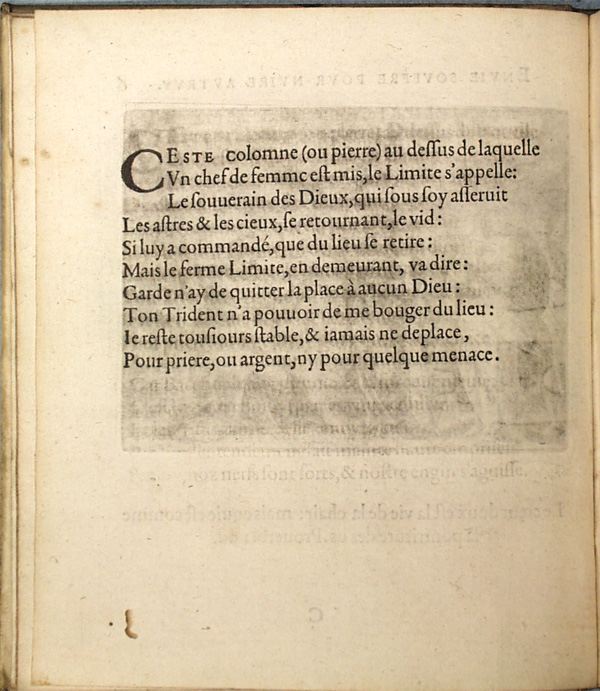 CESTE colomne (ou pierre) au dessus de laquelle
Vn chef de femme est mis, le Limite s'appelle:
Le souuerain des Dieux, qui sous soy asseruit
Les astres & les cieux, se retournant, le vid:
Si luy a commandé, que du lieu se retire:
Mais le ferme Limite, en demeurant, va dire:
Garde n'ay de quitter la place à aucun Dieu:
Ton Trident n'a pouuoir de me bouger du lieu:
Ie reste tousiours stable, & iamais ne deplace,
Pour priere, ou argent, ny pour quelque menace.